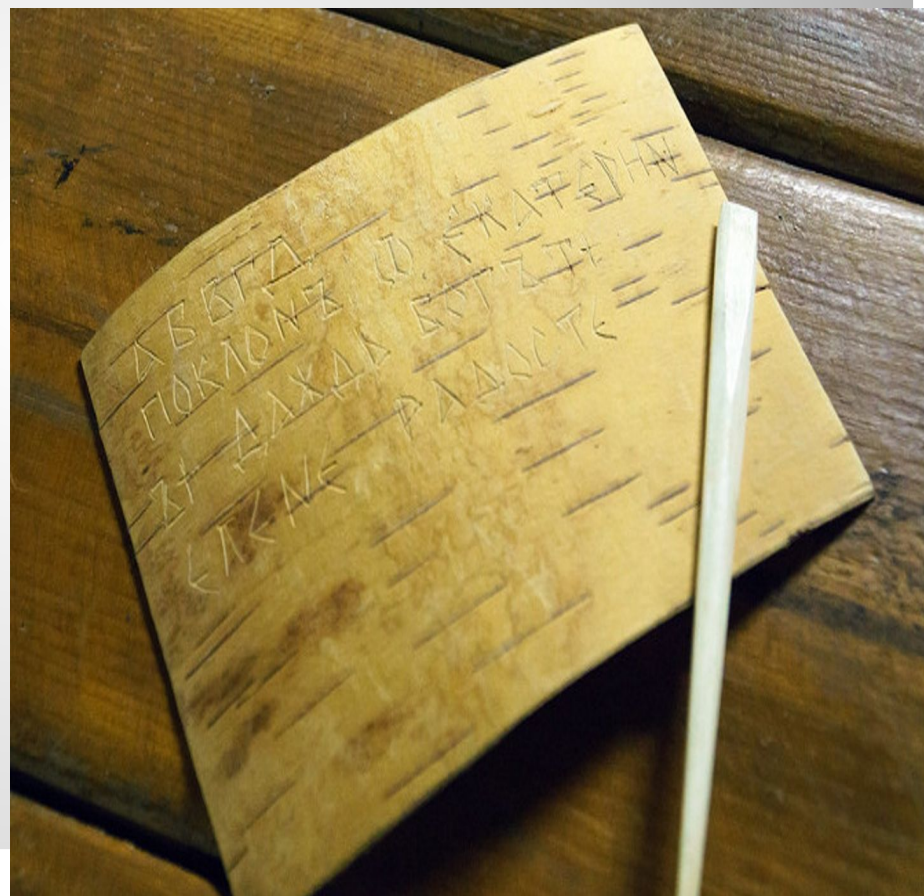 АБВГД
ПОКЛОНЪ Ѿ ЕКАТЕРИН
ЪІ ДАЖДЬ БОГЪ ТІ
ЕЛЕНЕ РАДОСТЕ